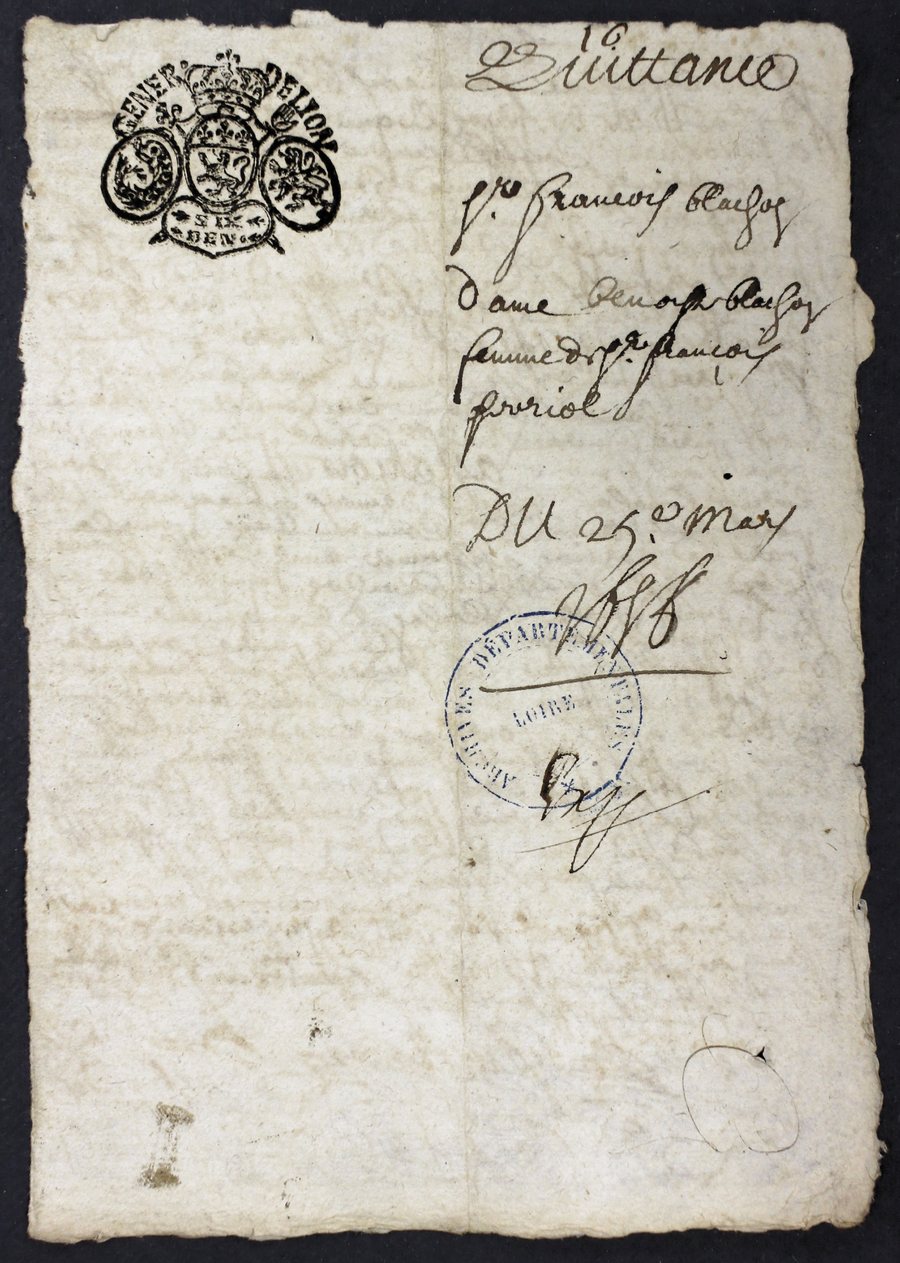 GENER. DE LION
SIX
DEN.
16
Quittance
Sr. francois blachon
dame benoiste blachon
femme de Sr. françois
perriol
DU 25e mars
1686
ARCHIVES DÉPARTEMENTALES
LOIRE